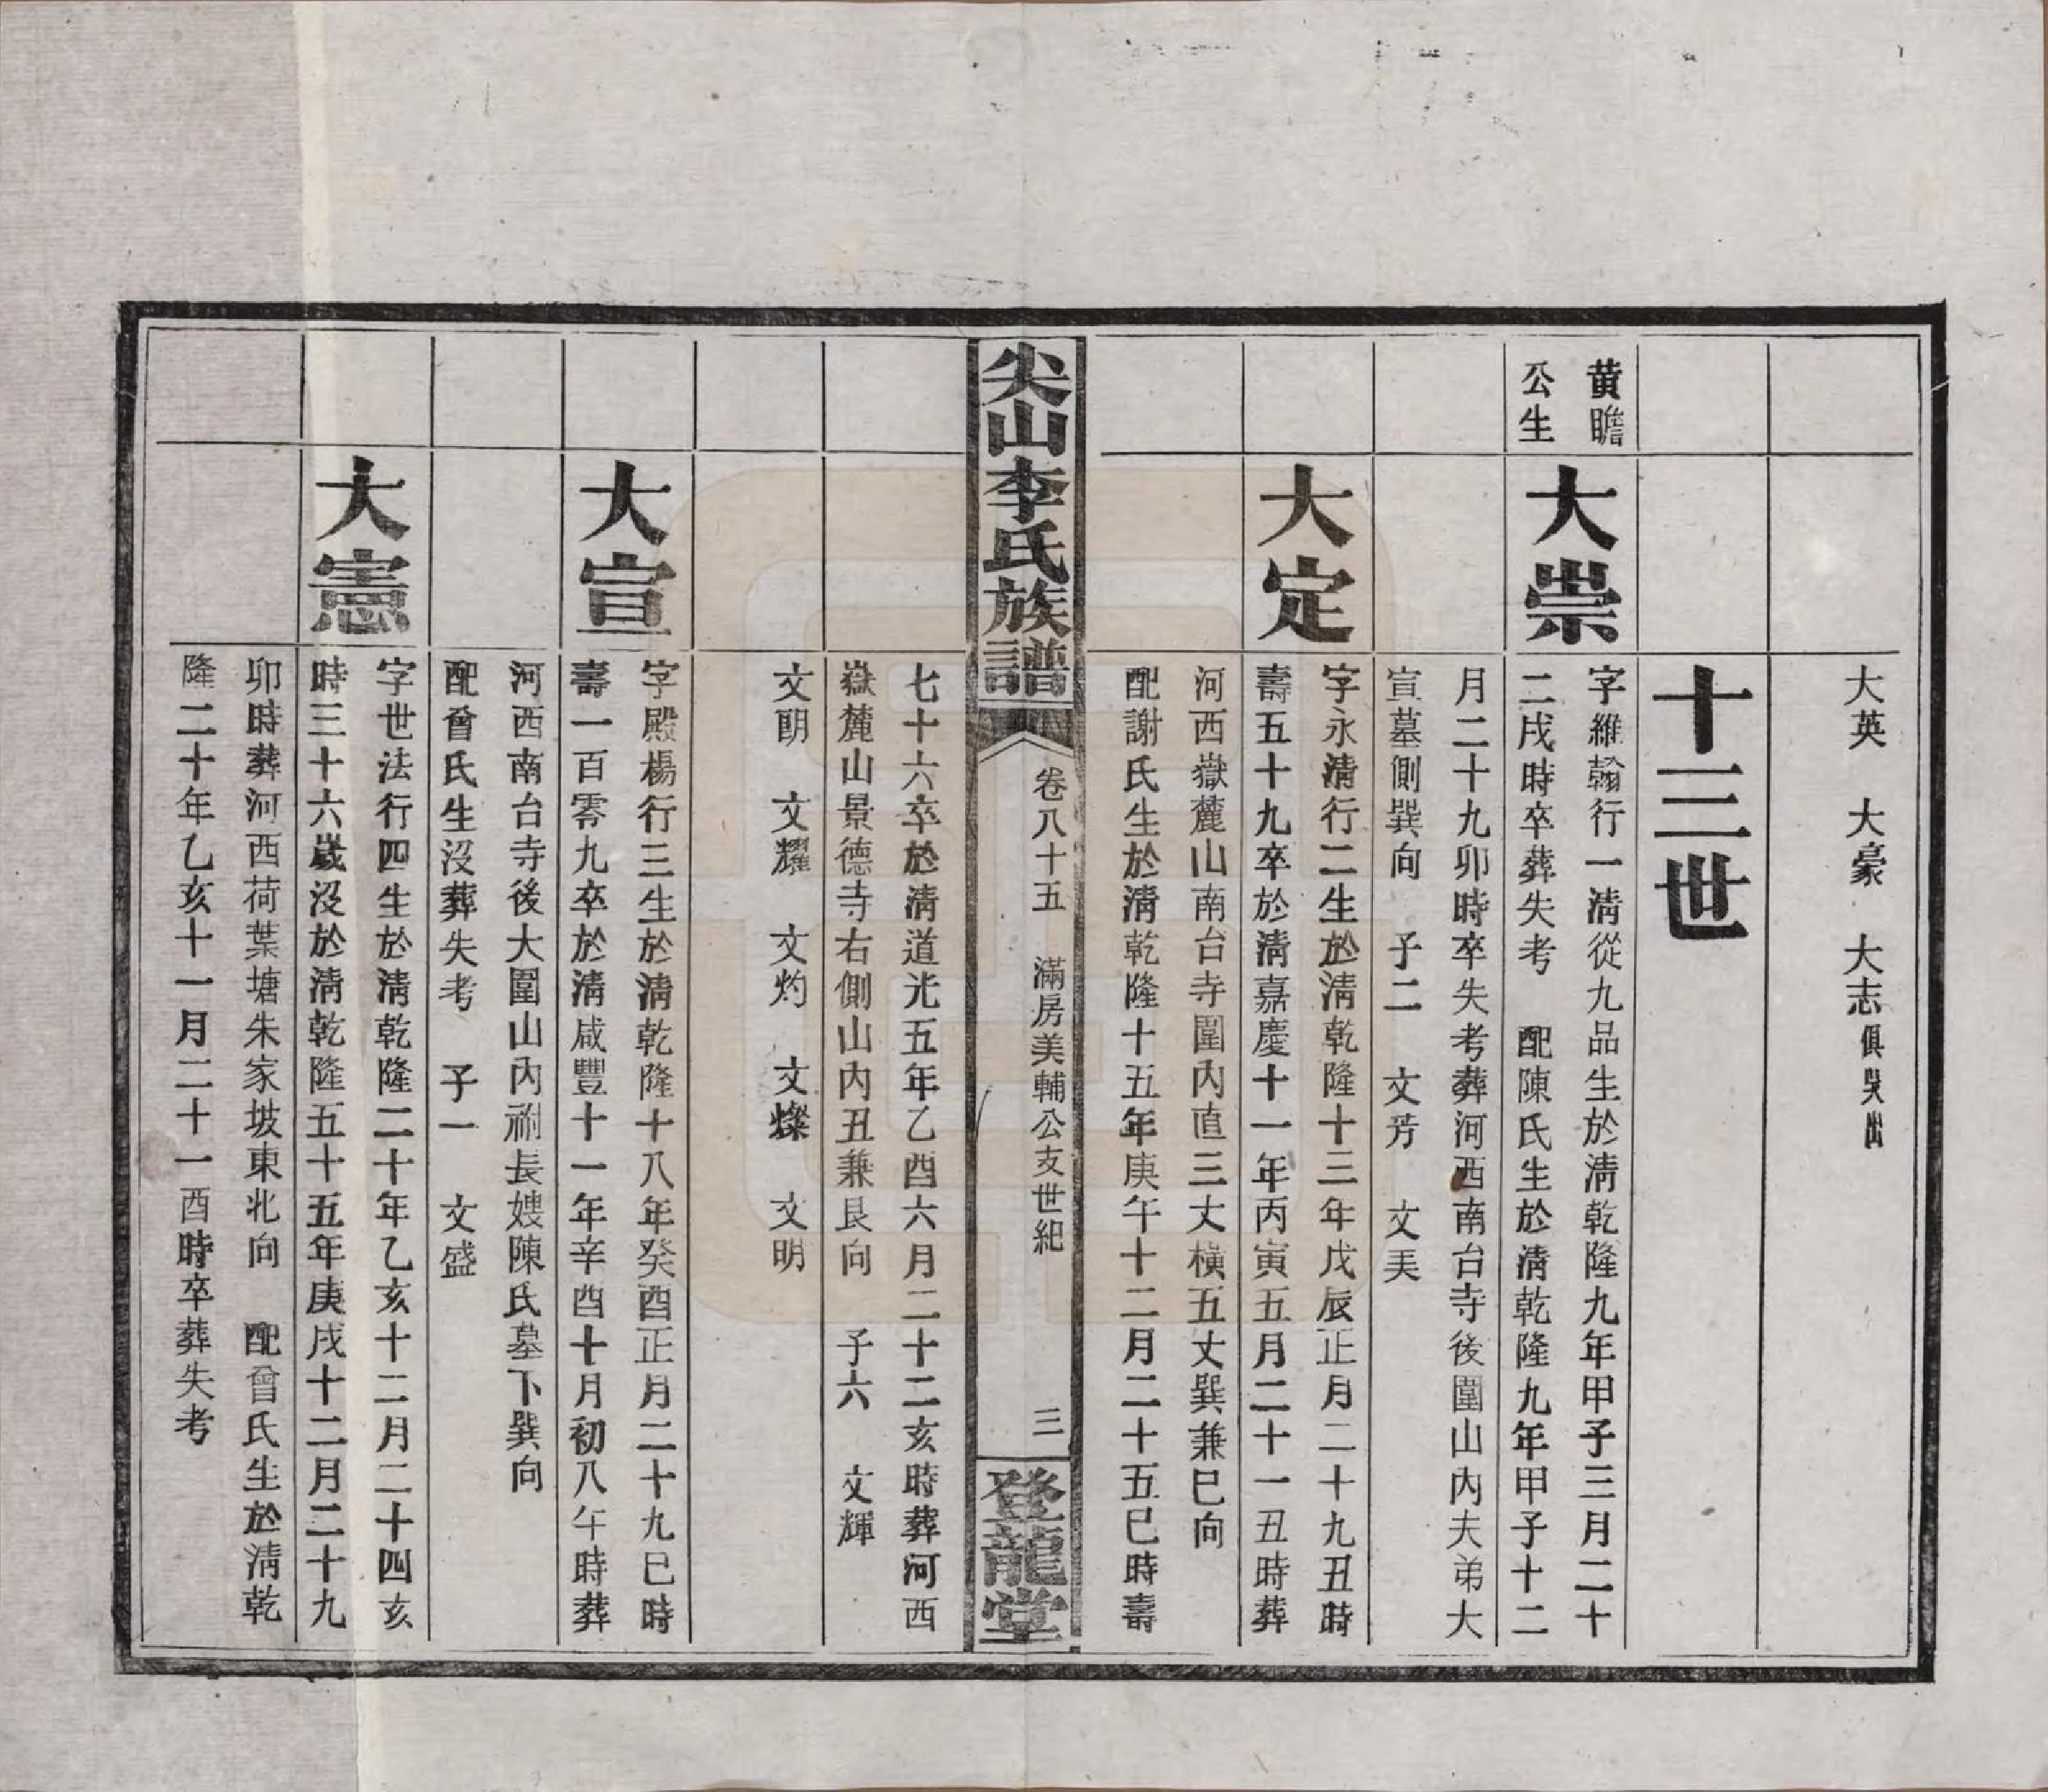 大英　大豪　大志俱吳出
十三世
黃瞻
公生
大崇
字維翰行一淸從九品生於淸乾隆九年甲子三月二十
二戌時卒葬失考　配陳氏生於淸乾隆九年甲子十二
月二十九卯時卒失考葬河西南台寺後圍山內夫弟大
宣墓側巽向　子二　文芳　文美
大定
字永淸行二生於淸乾隆十三年戊辰正月二十九丑時
壽五十九卒於淸嘉慶十一年丙寅五月二十一丑時葬
河西嶽麓山南台寺圍內直三丈橫五丈巽兼巳向
配謝氏生於淸乾隆十五年庚午十二月二十五巳時壽
尖山李氏族譜
卷八十五　滿房美輔公支世紀
三
登龍堂
七十六卒於淸道光五年乙酉六月二十二亥時葬河西
嶽麓山景德寺右側山內丑兼艮向　子六　文輝
文朗　文耀　文灼　文燦　文明
大宣
字殿楊行三生於淸乾隆十八年癸酉正月二十九巳時
壽一百零九卒於淸咸豐十一年辛酉十月初八午時葬
河西南台寺後大圍山內祔長嫂陳氏墓下巽向
配曾氏生沒葬失考　子一　文盛
大憲
字世法行四生於淸乾隆二十年乙亥十二月二十四亥
時三十六歲沒於淸乾隆五十五年庚戌十二月二十九
卯時葬河西荷葉塘朱家坡東北向　配曾氏生於淸乾
隆二十年乙亥十一月二十一酉時卒葬失考